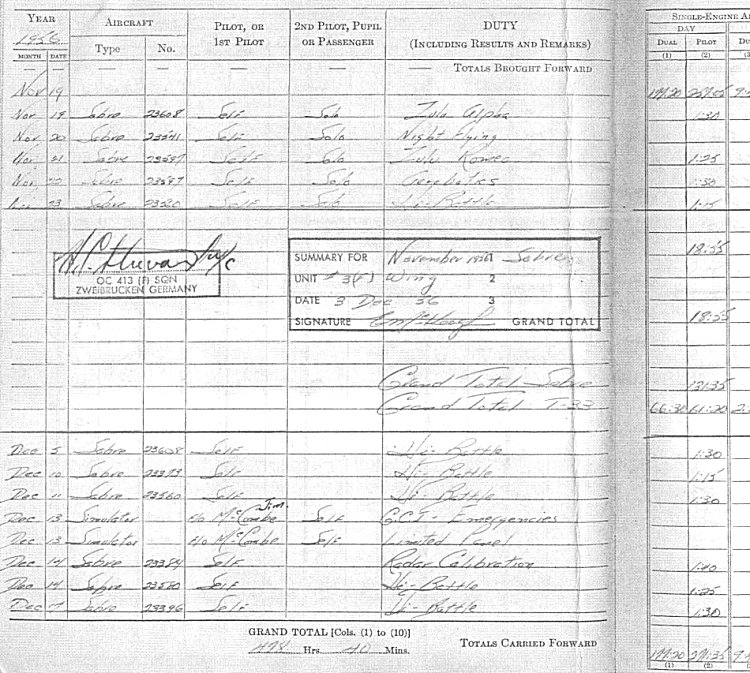 YEAR 1956 AIRCRAFT PILOT, OR 1ST PILOT 2ND PILOT, PUPIL OR PASSENGER DUTY (INCLUDING RESULTS AND REMARKS) SINGLE-ENGINE A
DAY
MONTH DATE Type No. DUAL PILOT DU
(1) (2) (3
— — — — — TOTALS BROUGHT FORWARD
Nov 19 199:20
Nov 19 Sabre 23608 Self Solo Zulu Alpha 1:30
Nov 20 Sabre Self Solo Night Flying
Nov 21 Sabre Self Solo Zulu Romeo 1:25
Nov 22 Sabre Self Solo Aerobatics
23 Sabre Self Solo Hi-Battle 1:15
18:55
OC 413 (F) SQN
ZWEIBRUCKEN GERMANY
SUMMARY FOR November 1956 1 Sabre
UNIT #3(F) Wing 2
DATE 3 Dec 56 3
SIGNATURE GRAND TOTAL 18:55
Grand Total Sabre 131:35
Grand Total T-33 66:30 61:20
Dec 5 Sabre 23608 Self Hi-Battle 1:30
Dec 10 Sabre 23373 Self Hi-Battle 1:15
Dec 11 Sabre 23560 Self Hi-Battle 1:30
Dec 13 Simulator F/o McCombe Jim Self G.C.I - Emergencies
Dec 13 Simulator F/o McCombe Self Limited Panel
Dec 14 Sabre 23384 Self Radar Calibration
Dec 14 Sabre Self Hi-Battle 1:25
Dec Sabre 23396 Self Hi-Battle 1:30
GRAND TOTAL [Cols. (1) to (10)]
498 Hrs. 40 Mins. TOTALS CARRIED FORWARD 199:20
(1) (2)